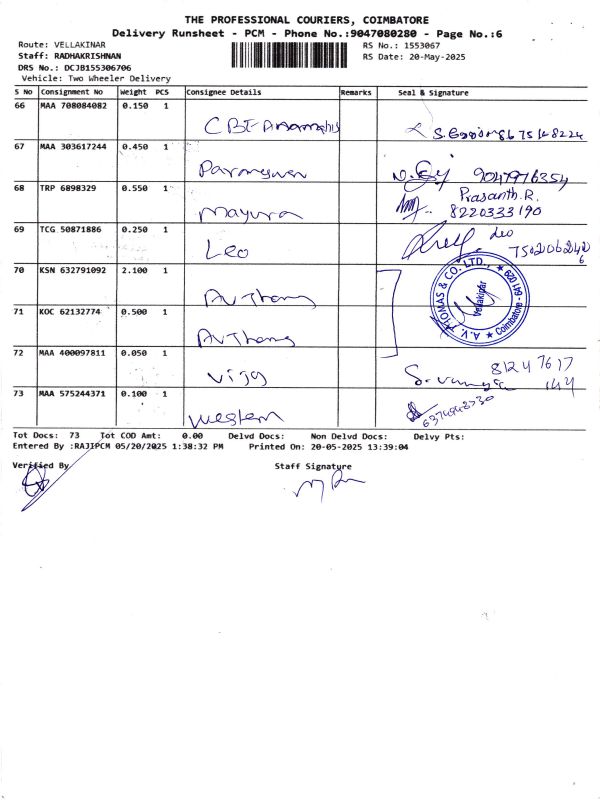 THE PROFESSIONAL COURIERS, COIMBATORE
Delivery Runsheet - PCM - Phone No.:9047080280 - Page No.:6
Route: VELLAKINAR RS No.: 1553067
Staff: RADHAKRISHNAN RS Date: 20-May-2025
DRS No.: DCJB155306706
Vehicle: Two Wheeler Delivery
S No Consignment No Weight PCS Consignee Details Remarks Seal & Signature
66 MAA 708084082 0.150 1
CBE
67 MAA 303617244 0.450 1
Parameswari 9047916354
68 TRP 6898329 0.550 1 Prasanth.R.
Mayura 8220333190
69 TCG 50871886 0.250 1 Leo
Leo
70 KSN 632791092 2.100 1
AV Thomas
A.V. THOMAS & CO. LTD., ★ Coimbatore - 641 029 ★
Vellakipar
71 KOC 62132774 0.500 1
AV Thomas
72 MAA 400097811 0.050 1 8124 7617
Vijay 144
73 MAA 575244371 0.100 1
Western 6374948730
Tot Docs: 73 Tot COD Amt: 0.00 Delvd Docs: Non Delvd Docs: Delvy Pts:
Entered By :RAJIPCM 05/20/2025 1:38:32 PM Printed On: 20-05-2025 13:39:04
Verified By Staff Signature